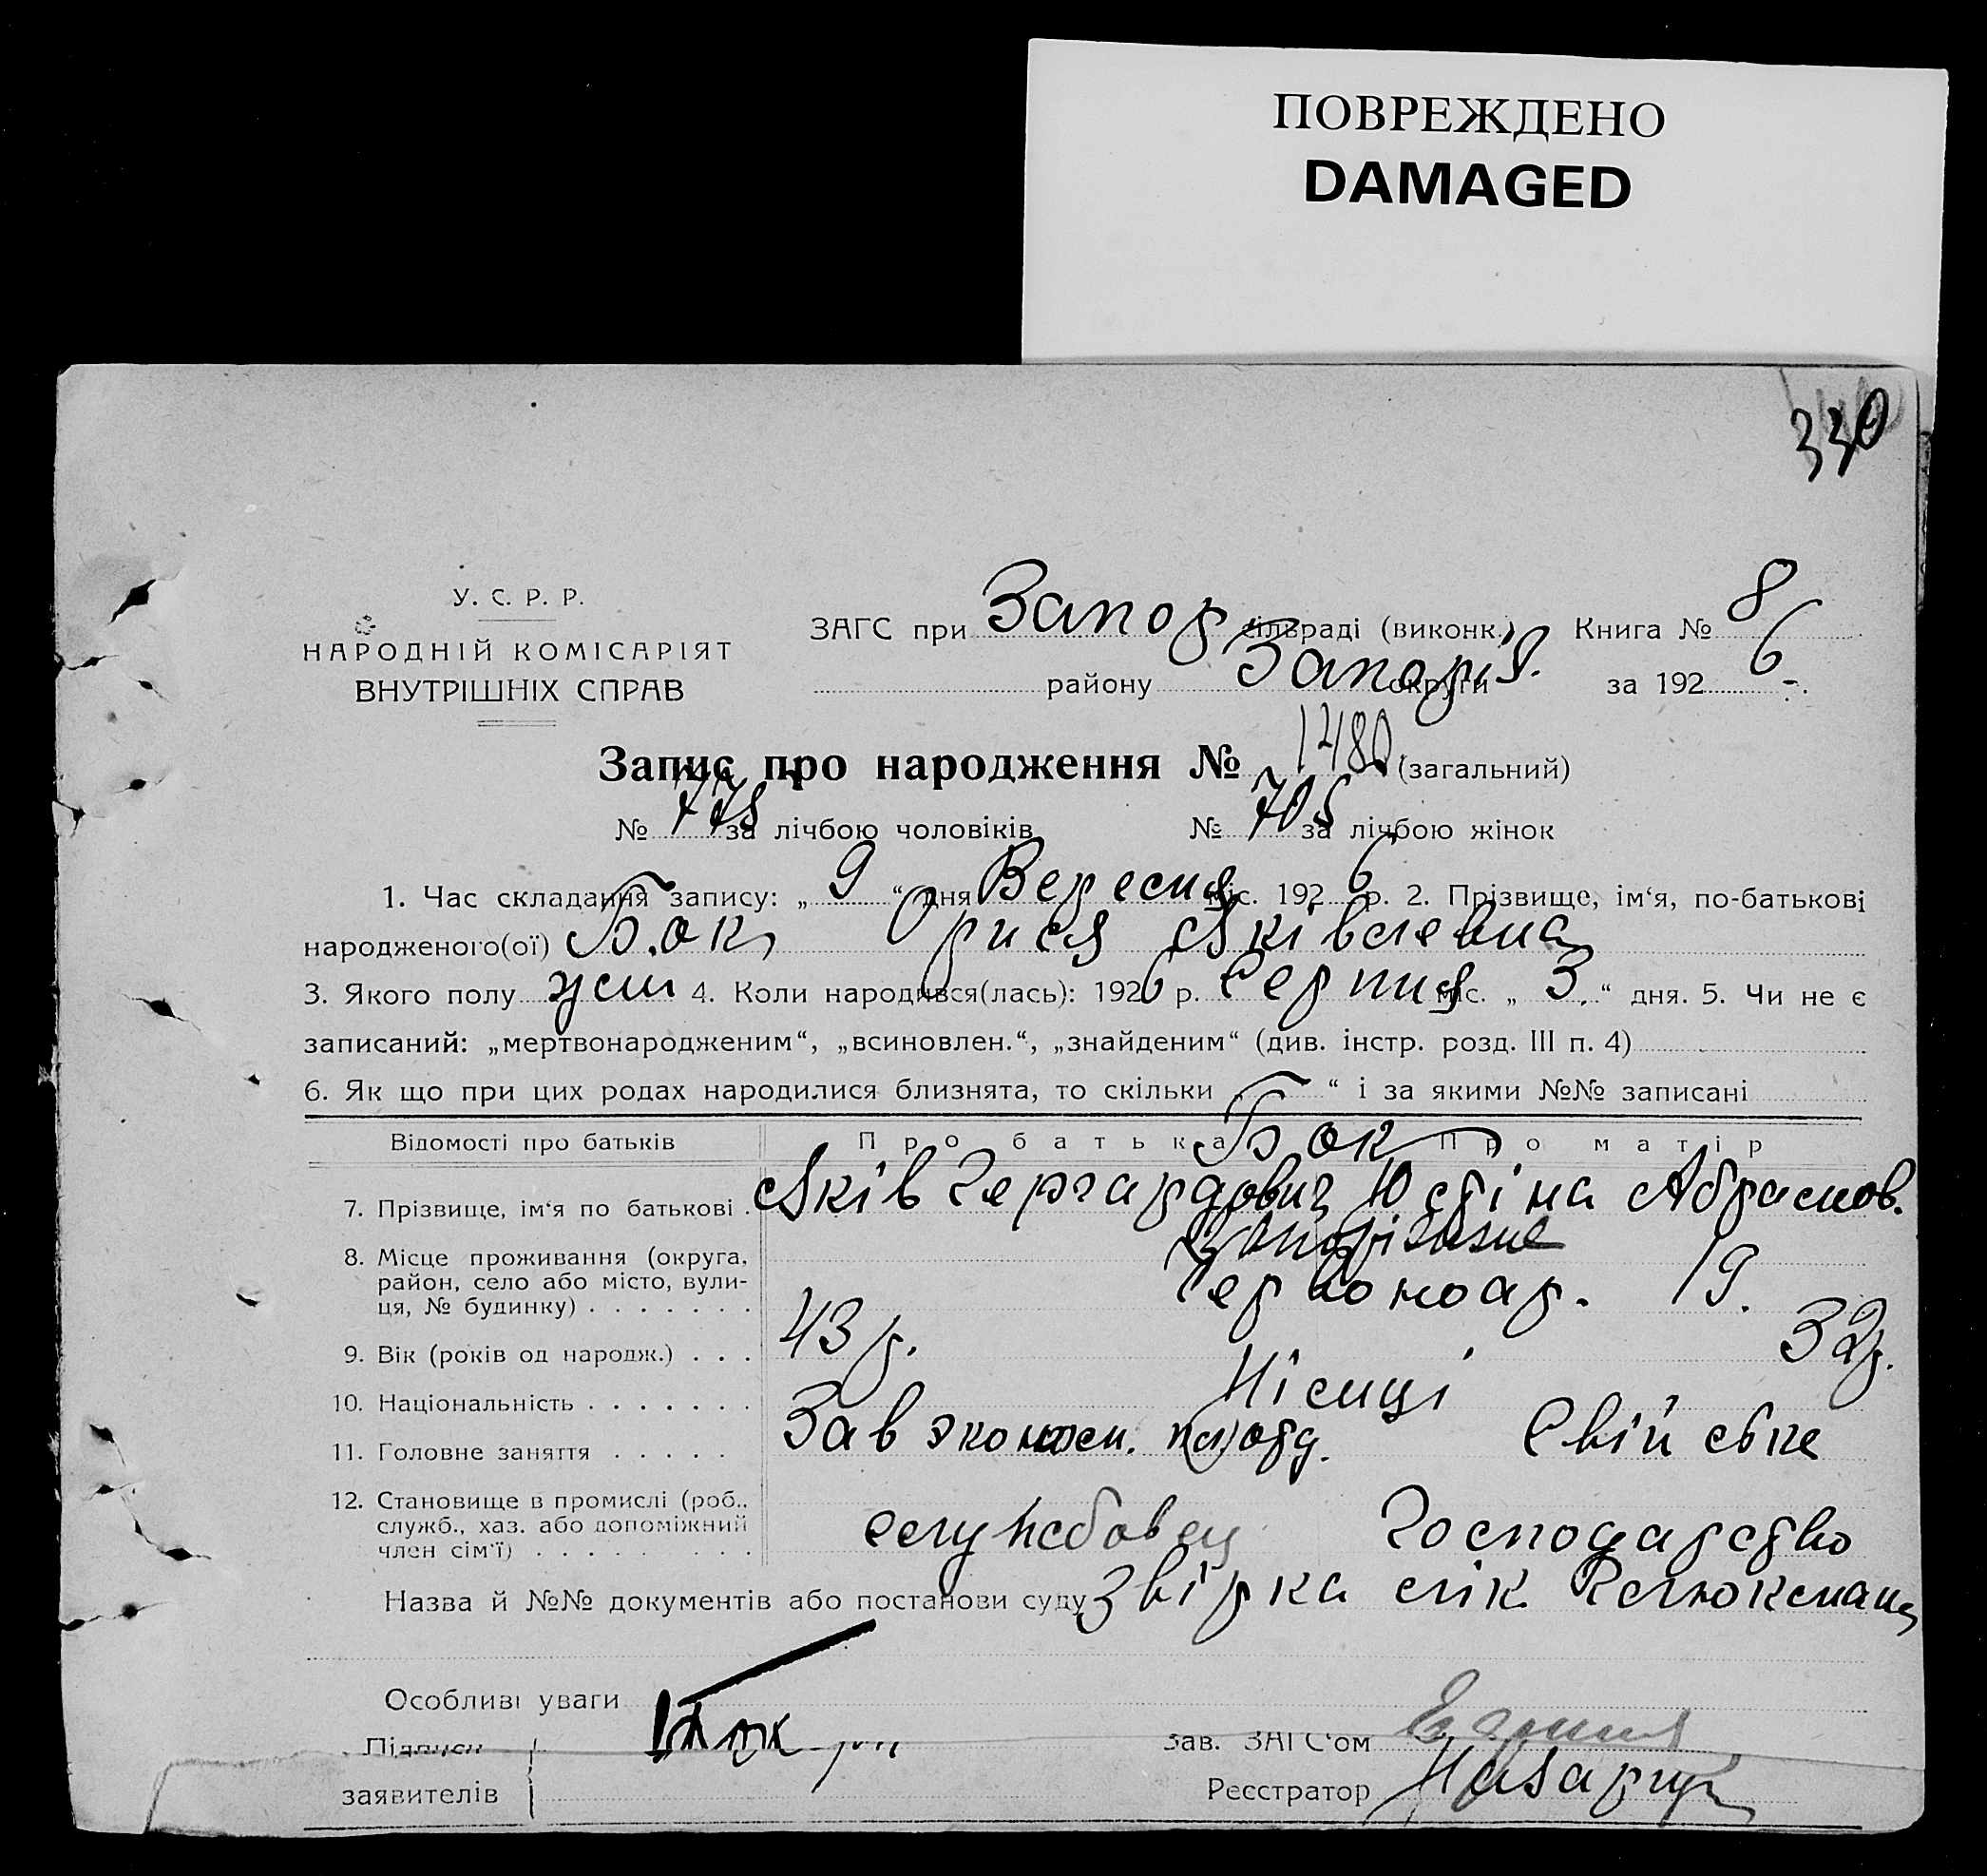 ПОВРЕЖДЕНО
DAMAGED
330
У. С. Р. Р.
НАРОДНІЙ КОМІСАРІЯТ
ВНУТРІШНІХ СПРАВ
ЗАГС при Запор сільраді (виконк.) Книга № 8
району Запоріз. округи за 1926
Запис про народження № 1480 (загальний)
№ 775 за лічбою чоловіків № 705 за лічбою жінок
1. Час складання запису: „ 9 “ дня Вересня міс. 1926 р. 2. Прізвище, ім'я, по-батькові
народженого(ої) Бок Яківлевна
3. Якого полу жен 4. Коли народився(лась): 1926 р. Серпня міс. „ 3. “ дня. 5. Чи не є
записаний: „мертвонародженим“, „всиновлен.“, „знайденим“ (див. інстр. розд. III п. 4)
6. Як що при цих родах народилися близнята, то скільки „ “ і за якими №№ записані
Відомості про батьків Про батька Бок Про матір
7. Прізвище, ім'я по батькові . Яків Гергардович Юстіна Абрамов.
8. Місце проживання (округа, район, село або місто, вулиця, № будинку) . . . . . . . Запоріжжє
Червоноар. 19.
9. Вік (років од народж.) . . . 43 р. 32 р.
10. Національність . . . . . . . Німці
11. Головне заняття . . . . . Зав эконом. Свійське
12. Становище в промислі (роб.. служб., хаз. або допоміжний член сім'ї) . . . . . . . . службовец Господарство
Назва й №№ документів або постанови суду Звірка
Особливі уваги
Підписи Бок Зав. ЗАГС'ом
заявителів Реєстратор